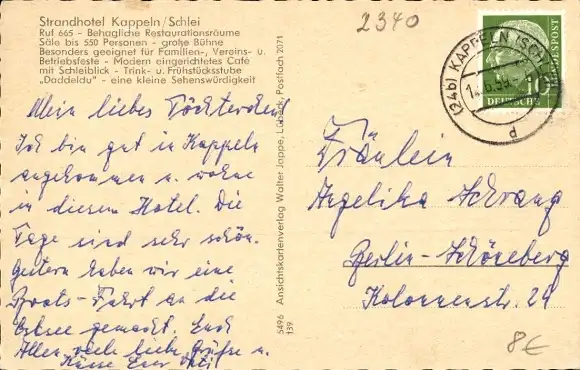 Strandhotel Kappeln/Schlei
Ruf 665 - Behagliche Restaurationsräume
Säle bis 550 Personen - große Bühne
Besonders geeignet für Familien-, Vereins- u.
Betriebsfeste - Modern eingerichtetes Café
mit Schleiblick - Trink- u. Frühstücksstube
„Daddeldu" - eine kleine Sehenswürdigkeit
Mein liebes Töchterchen!
Ich bin gut in Kappeln
angekommen u. wohne
in diesem Hotel. Die
Tage sind sehr schön.
Gestern haben wir eine
Boots-Fahrt an die
Ostsee gemacht. Euch
Allen viele liebe Grüße u.
Küsse Euer
5496 Ansichtskartenverlag Walter Jappe, Lübeck, Postfach 2071
139
2340
(24b) KAPPELN (SCHLEI)
d
10
DEUTSCHE BUNDESPOST
Fräulein
Angelika Schwang
Berlin-Schöneberg
Kolonnenstr. 24
8€